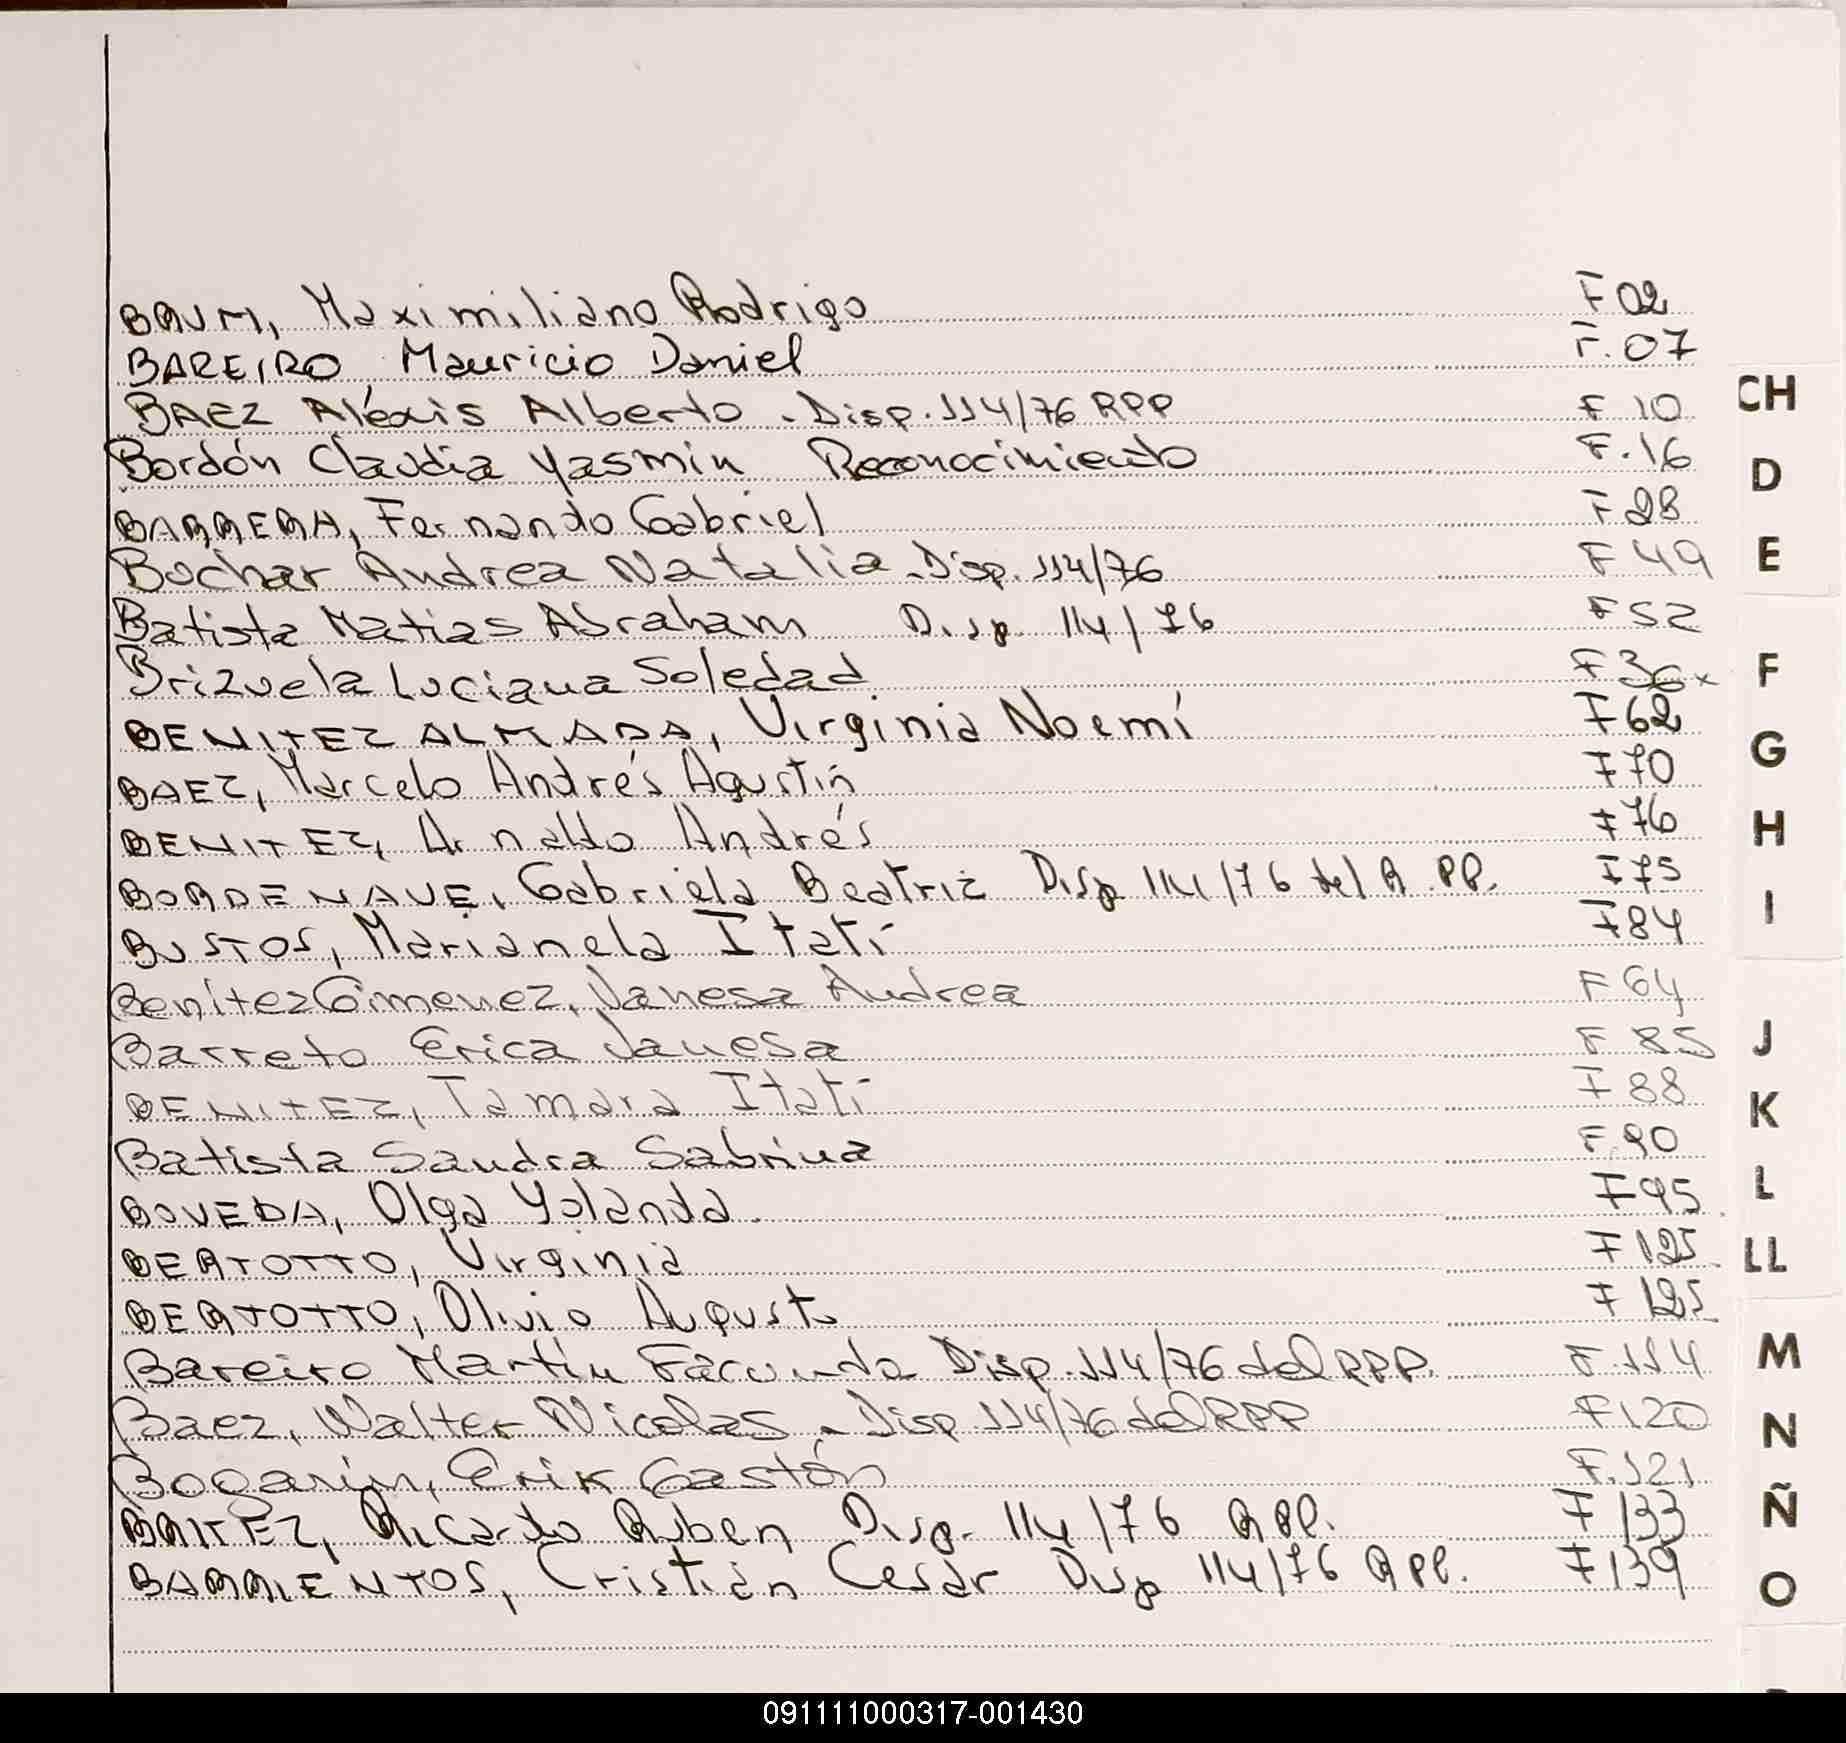 BAUM, Maximiliano Rodrigo F 02
BAREIRO Mauricio Daniel F. 07
BAEZ Aléxis Alberto - Disp. 114/76 RPP F 10
Bordón Claudia Yasmin Reconocimiento F. 16
BARRERA, Fernando Gabriel F 28
Bochar Andrea Natalia - Disp. 114/76 F 49
Batista Matias Abraham Disp. 114/76 F 52
Brizuela Luciana Soledad F 36 x
BENITEZ ALMADA, Virginia Noemí F 62
BAEZ, Marcelo Andrés Agustín F 70
BENITEZ, Arnaldo Andrés F 76
BORDENAVE, Gabriela Beatriz Disp 114/76 del R.PP. F 75
BUSTOS, Marianela Itatí F 84
Benítez Gimenez, Vanesa Andrea F 64
Barreto Erica Vanesa F 85
BENITEZ, Tamara Itatí F 88
Batista Sandra Sabrina F. 90
BOVEDA, Olga Yolanda. F 95
BERTOTTO, Virginia F 125
BERTOTTO, Olivio Augusto F 125
Bareiro Martín Facundo Disp. 114/76 del RPP. F. 114
Baez, Walter Nicolas - Disp 114/76 del RPP F 120
Bogarin, Erik Gastón F. 121
BAITEZ, Ricardo Ruben Disp. 114/76 RPP. F 133
BARRIENTOS, Cristián Cesar Disp 114/76 RPP. F 139
CH
D
E
F
G
H
I
J
K
L
LL
M
N
Ñ
O
091111000317-001430